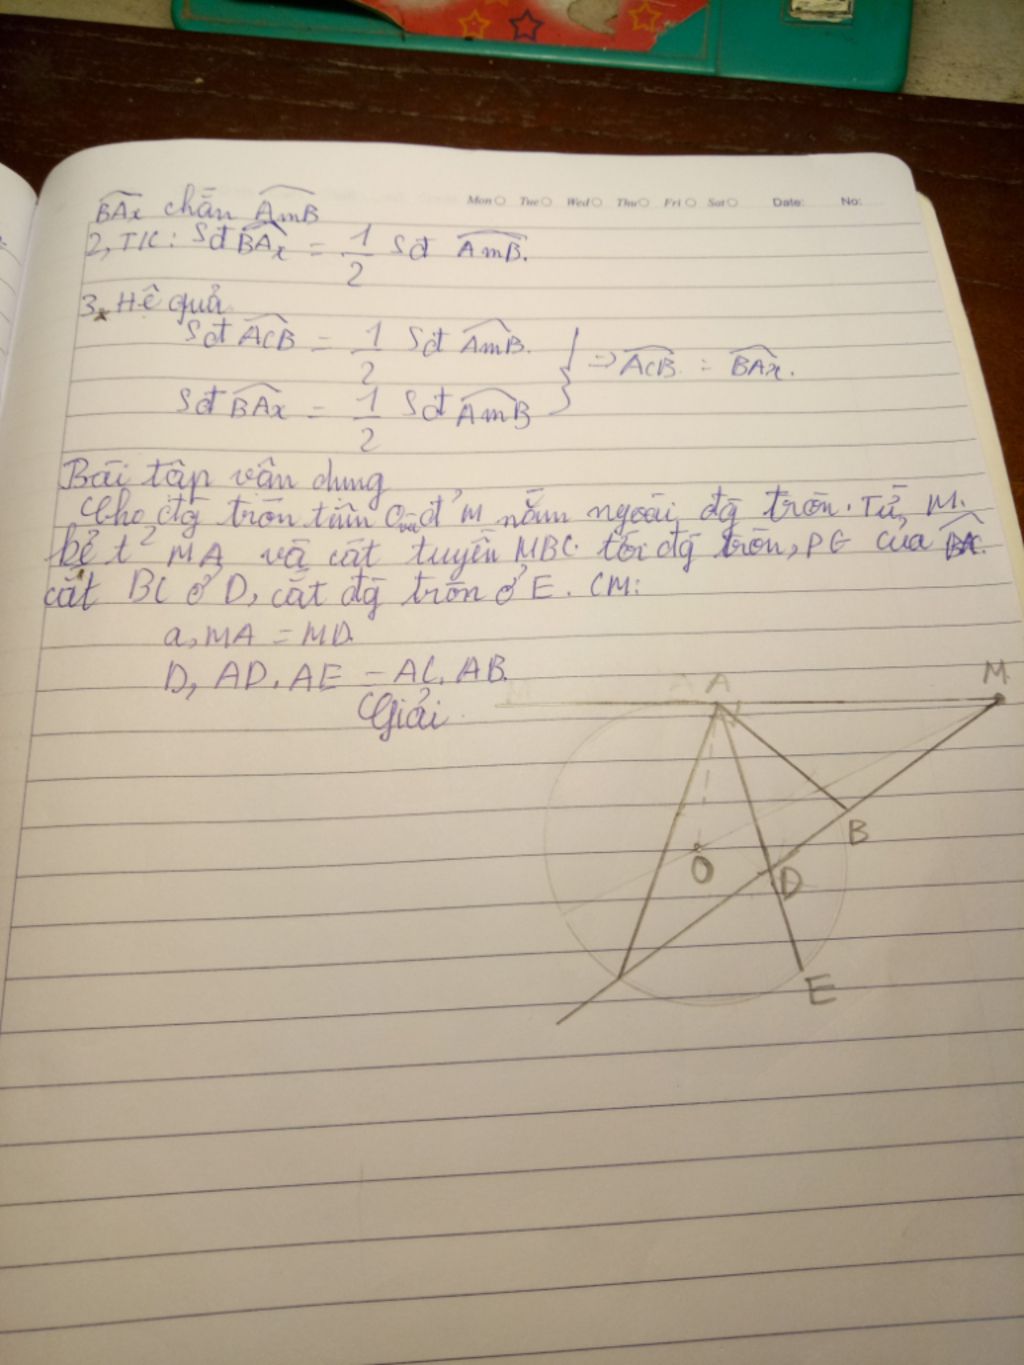 Mon Tue Wed Thu Fri Sat Date: No:
BAx chắn AmB
2, TK: Sđ BAx = 1/2 Sđ AmB.
3. Hệ quả
Sđ ACB = 1/2 Sđ AmB.
=> ACB = BAx.
Sđ BAx = 1/2 Sđ AmB
Bài tập vận dụng
Cho đg tròn tâm O và đ' M nằm ngoài đg tròn. Từ M.
kẻ t² MA và cát tuyến MBC tới đg tròn, PG của BAC
cắt BC ở D, cắt đg tròn ở E. CM:
a, MA = MD.
D, AD. AE = AC. AB.
Giải
A
M
B
O
D
E